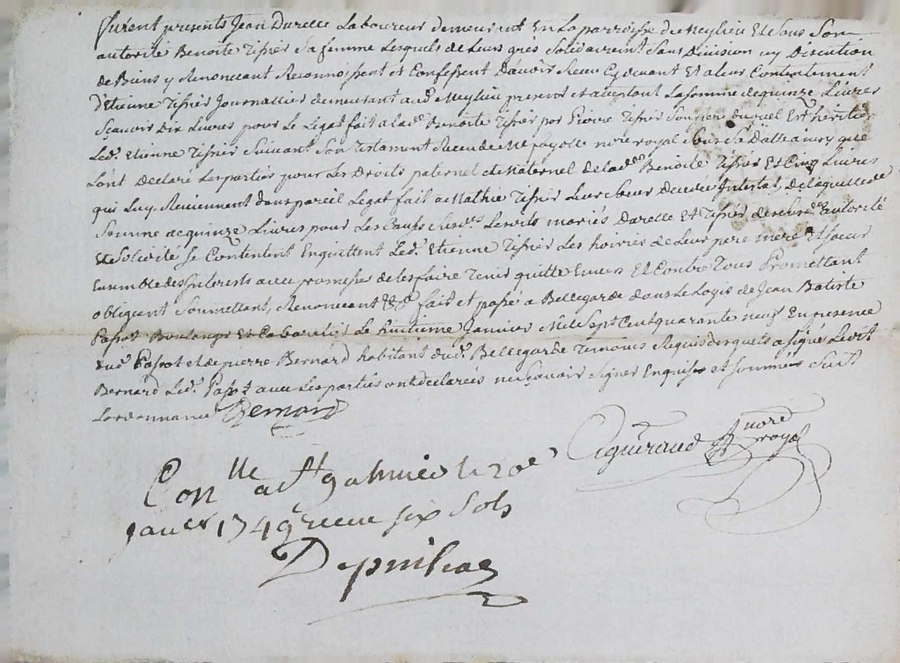 furent presents Jean Darelle Laboureur demeurant En La parroisse de Meylieu Et Sous Son
autorité Benoite Tissier Sa femme Lesquels de Leurs grés Solidairement Sans Division ny Discution
de Biens y Renoncant Reconnoissent et Confessent D'avoir Receu Cydevant Et a leur Contentement
d'Etienne Tissier Journallier demeurant aud. Meylieu present et acceptant La somme de quinze Livres
Scavoir Dix Livres pour Le Legat fait a lad. Benoite Tissier par Pierre Tissier Son frere duquel Est héritier
Led. Etienne Tissier Suivant Son Testament Receu de Me payolle nore royal a Sa Datte ainsy que
L'ont Declaré Les parties pour Les Droits paternel et Maternel de lad. Benoite Tissier Et Cinq Livres
qui Luy Reviennent dans pareil Legat fait a Mathie Tissier Leur Sœur Decedée Intestat, De laquelle de
Somme de quinze Livres pour Les Causes Susd. Lesdits mariés Darelle Et Tissier de Autorité
Et Solidité Se Contentent En quittent Led. Etienne Tissier Les hoiries de Leur pere mere Et sœur
Ensemble des Interests avec promesse de les faire Tenir quitte Envers Et Contre Tous Promettant
obligeant Soumettant, Renoncant &c fait et passé a Bellegarde dans Le Logis de Jean Batiste
Papot Boulanger Et Cabaretier Le huitieme Janvier Mil Sept Cent quarante neuf En presence
dud. Papot et de pierre Bernard habitant dud. Bellegarde Temoins Requis desquels a signé Ledit
Bernard Led. Papot avec Les parties ont declarés ne Scavoir Signer Enquis et sommés Suiv.t
Lordonnance Bernard
Aguiraud nore royal
Con.lle a St galmier le 20e
janer 1749 receu six Sols